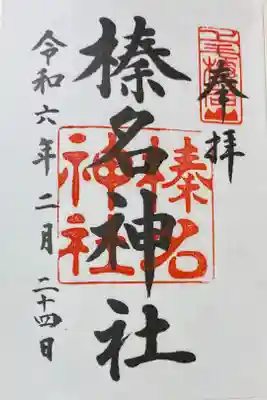 奉拝
榛名神社
榛名
神社
令和六年二月二十四日